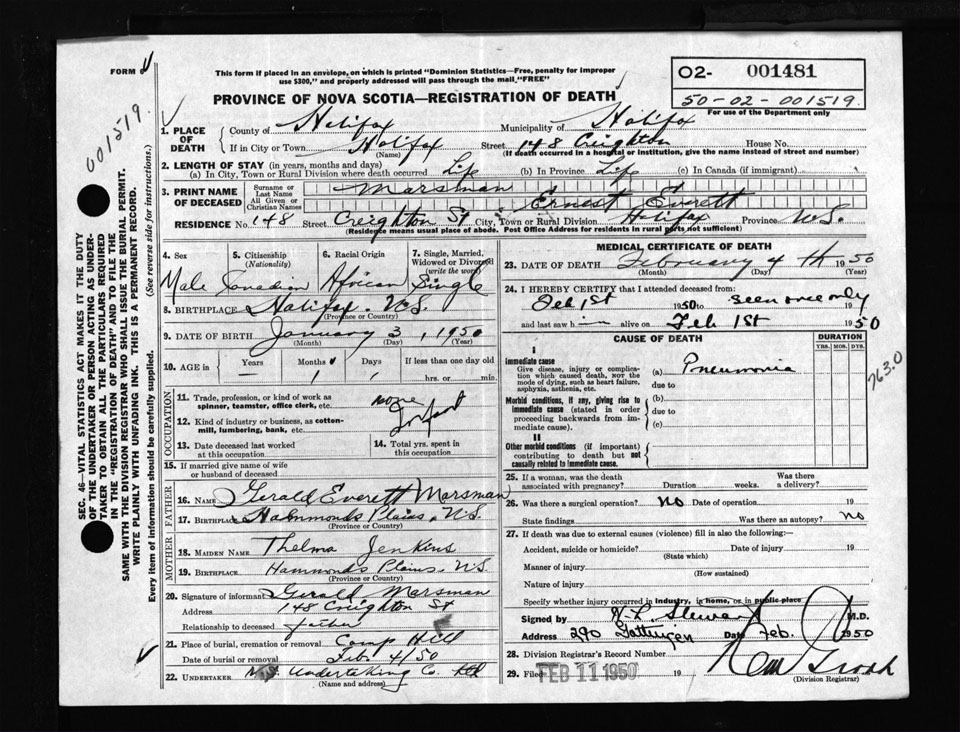 FORM
This form if placed in an envelope, on which is printed "Dominion Statistics—Free, penalty for improper
use $300," and properly addressed will pass through the mail "FREE"
02- 001481
50-02-001519
For use of the Department only
PROVINCE OF NOVA SCOTIA—REGISTRATION OF DEATH
001519.
1. PLACE OF DEATH
County of Halifax Municipality of Halifax
If in City or Town Halifax Street 148 Creighton House No.
(Name) (If death occurred in a hospital or institution, give the name instead of street and number)
2. LENGTH OF STAY (in years, months and days)
(a) In City, Town or Rural Division where death occurred Life (b) In Province Life (c) In Canada (if immigrant)
3. PRINT NAME OF DECEASED
Surname or Last Name Marsman
All Given or Christian Names Ernest Everett
RESIDENCE No. 148 Street Creighton St City, Town or Rural Division Halifax Province N.S.
(Residence means usual place of abode. Post Office Address for residents in rural parts not sufficient)
4. Sex Male
5. Citizenship (Nationality) Canadian
6. Racial Origin African
7. Single, Married, Widowed or Divorced (write the word) Single
8. BIRTHPLACE Halifax N.S.
(Province or Country)
9. DATE OF BIRTH January 3, 1950
(Month) (Day) (Year)
10. AGE in Years — Months 1 Days 1 If less than one day old
hrs. or min.
OCCUPATION
11. Trade, profession, or kind of work as
spinner, teamster, office clerk, etc. none
12. Kind of industry or business, as cotton-
mill, lumbering, bank, etc. Infant
13. Date deceased last worked
at this occupation
14. Total yrs. spent in
this occupation
15. If married give name of wife
or husband of deceased
FATHER
16. NAME Gerald Everett Marsman
17. Birthplace Hammonds Plains, N.S.
(Province or Country)
MOTHER
18. MAIDEN NAME Thelma Jenkins
19. BIRTHPLACE Hammonds Plains, N.S.
(Province or Country)
20. Signature of informant Gerald Marsman
Address 148 Creighton St
Relationship to deceased father
21. Place of burial, cremation or removal Camp Hill
Date of burial or removal Feb. 4/50
22. UNDERTAKER N.S. Undertaking Co. Ltd
(Name and address)
MEDICAL CERTIFICATE OF DEATH
23. DATE OF DEATH February 4th 1950
(Month) (Day) (Year)
24. I HEREBY CERTIFY that I attended deceased from:
Feb 1st 1950 to seen once only 19
and last saw h im alive on Feb 1st 1950
CAUSE OF DEATH
DURATION
YRS. MOS. DYS.
I
Immediate cause
Give disease, injury or complica-
tion which caused death, NOT the
mode of dying, such as heart failure,
asphyxia, asthenia, etc.
(a) Pneumonia
due to
763.0
Morbid conditions, if any, giving rise to
immediate cause (stated in order
proceeding backwards from im-
mediate cause).
(b)
due to
(c)
II
Other morbid conditions (if important)
contributing to death but not
causally related to immediate cause.
25. If a woman, was the death
associated with pregnancy? Duration weeks. Was there
a delivery?
26. Was there a surgical operation? No Date of operation 19
State findings Was there an autopsy? No
27. If death was due to external causes (violence) fill in also the following:
Accident, suicide or homicide? Date of injury 19
(State which)
Manner of injury
(How sustained)
Nature of injury
Specify whether injury occurred in industry, in home, or in public place
Signed by Stewart M.D.
Address 290 Gottingen Date Feb. 1950
28. Division Registrar's Record Number
29. Filed FEB 11 1950 19
(Division Registrar)
SEC. 46—VITAL STATISTICS ACT MAKES IT THE DUTY
OF THE UNDERTAKER OR PERSON ACTING AS UNDER-
TAKER TO OBTAIN ALL THE PARTICULARS REQUIRED
IN THE "REGISTRATION OF DEATH" AND TO FILE THE
SAME WITH THE DIVISION REGISTRAR WHO SHALL ISSUE THE BURIAL PERMIT.
WRITE PLAINLY WITH UNFADING INK. THIS IS A PERMANENT RECORD.
Every item of information should be carefully supplied. (See reverse side for instructions.)